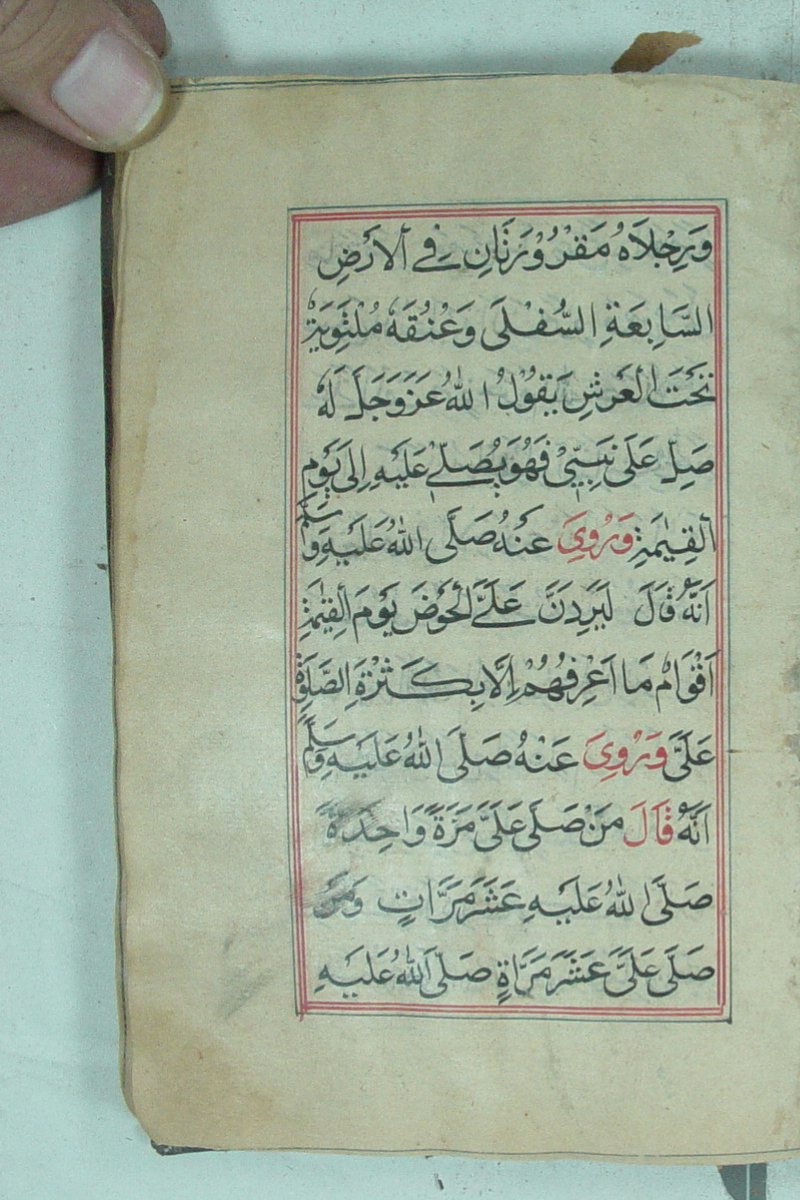 وَرِجْلَاهُ مَقْرُوْرَتَانِ فِي الْاَرْضِ
السَّابِعَةِ السُّفْلَى وَعُنُقُهُ مُلْتَوِيَةٌ
تَحْتَ الْعَرْشِ يَقُوْلُ اللهُ عَزَّ وَجَلَّ لَهُ
صَلِّ عَلَى نَبِيِّيْ فَهُوَ يُصَلِّيْ عَلَيْهِ اِلَى يَوْمِ
الْقِيٰمَةِ وَرُوِيَ عَنْهُ صَلَّى اللهُ عَلَيْهِ وَسَلَّمَ
اَنَّهُ قَالَ لَيَرِدَنَّ عَلَيَّ الْحَوْضَ يَوْمَ الْقِيٰمَةِ
اَقْوَامٌ مَا اَعْرِفُهُمْ اِلَّا بِكَثْرَةِ الصَّلٰوةِ
عَلَيَّ وَرُوِيَ عَنْهُ صَلَّى اللهُ عَلَيْهِ وَسَلَّمَ
اَنَّهُ قَالَ مَنْ صَلَّى عَلَيَّ مَرَّةً وَاحِدَةً
صَلَّى اللهُ عَلَيْهِ عَشَرَ مَرَّاتٍ وَمَنْ
صَلَّى عَلَيَّ عَشَرَ مَرَّاةٍ صَلَّى اللهُ عَلَيْهِ